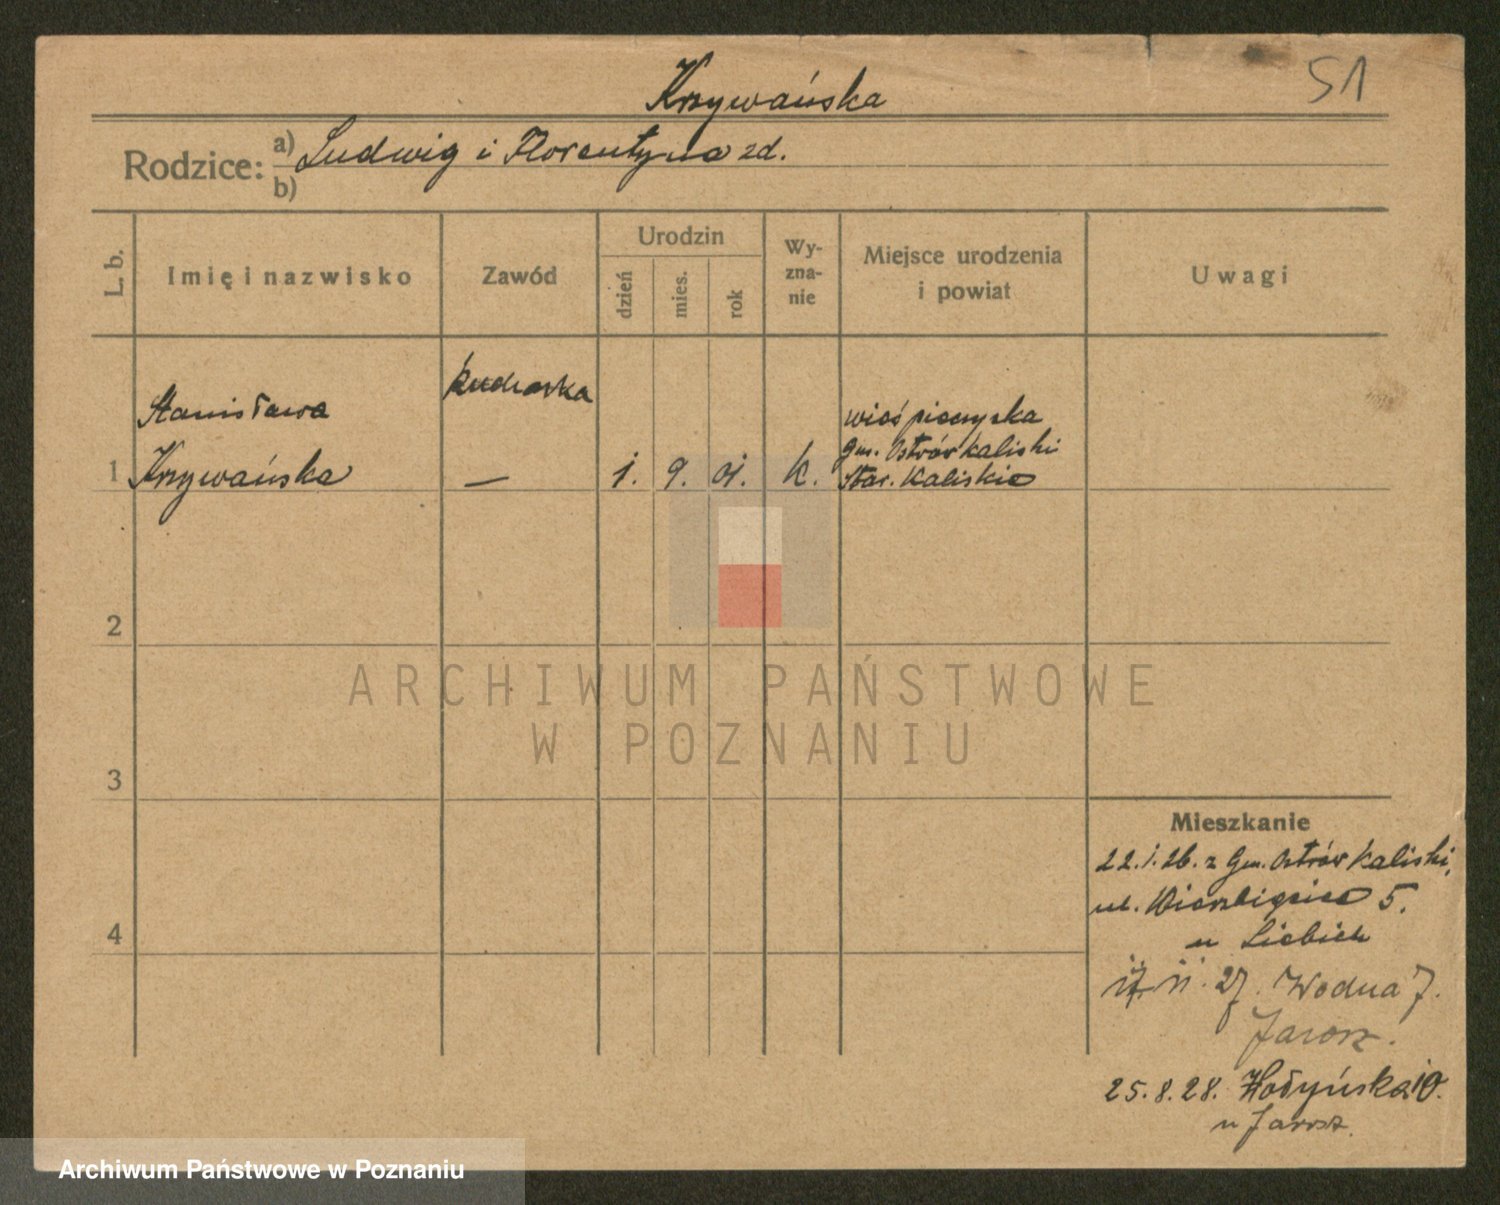 Krzywańska
51
Rodzice: a) Ludwig i Florentyna zd.
b)
L. b.
Imię i nazwisko
Zawód
Urodzin
dzień
mies.
rok
Wy-
zna-
nie
Miejsce urodzenia
i powiat
Uwagi
Stanisława
Krzywańska
kucharka
—
1
1. 9. 01. k.
wieś pieczyska
gm. Ostrów kaliski
Star. Kaliskie
2
3
4
Mieszkanie
22.1.26. z gm. Ostrów kaliski,
ul. Wierzbięcice 5.
u Liebich
17. 11. 27. Wodna 7.
Jarosz.
25.8.28. 10.
u Jarosz.
ARCHIWUM PAŃSTWOWE
W POZNANIU
Archiwum Państwowe w Poznaniu